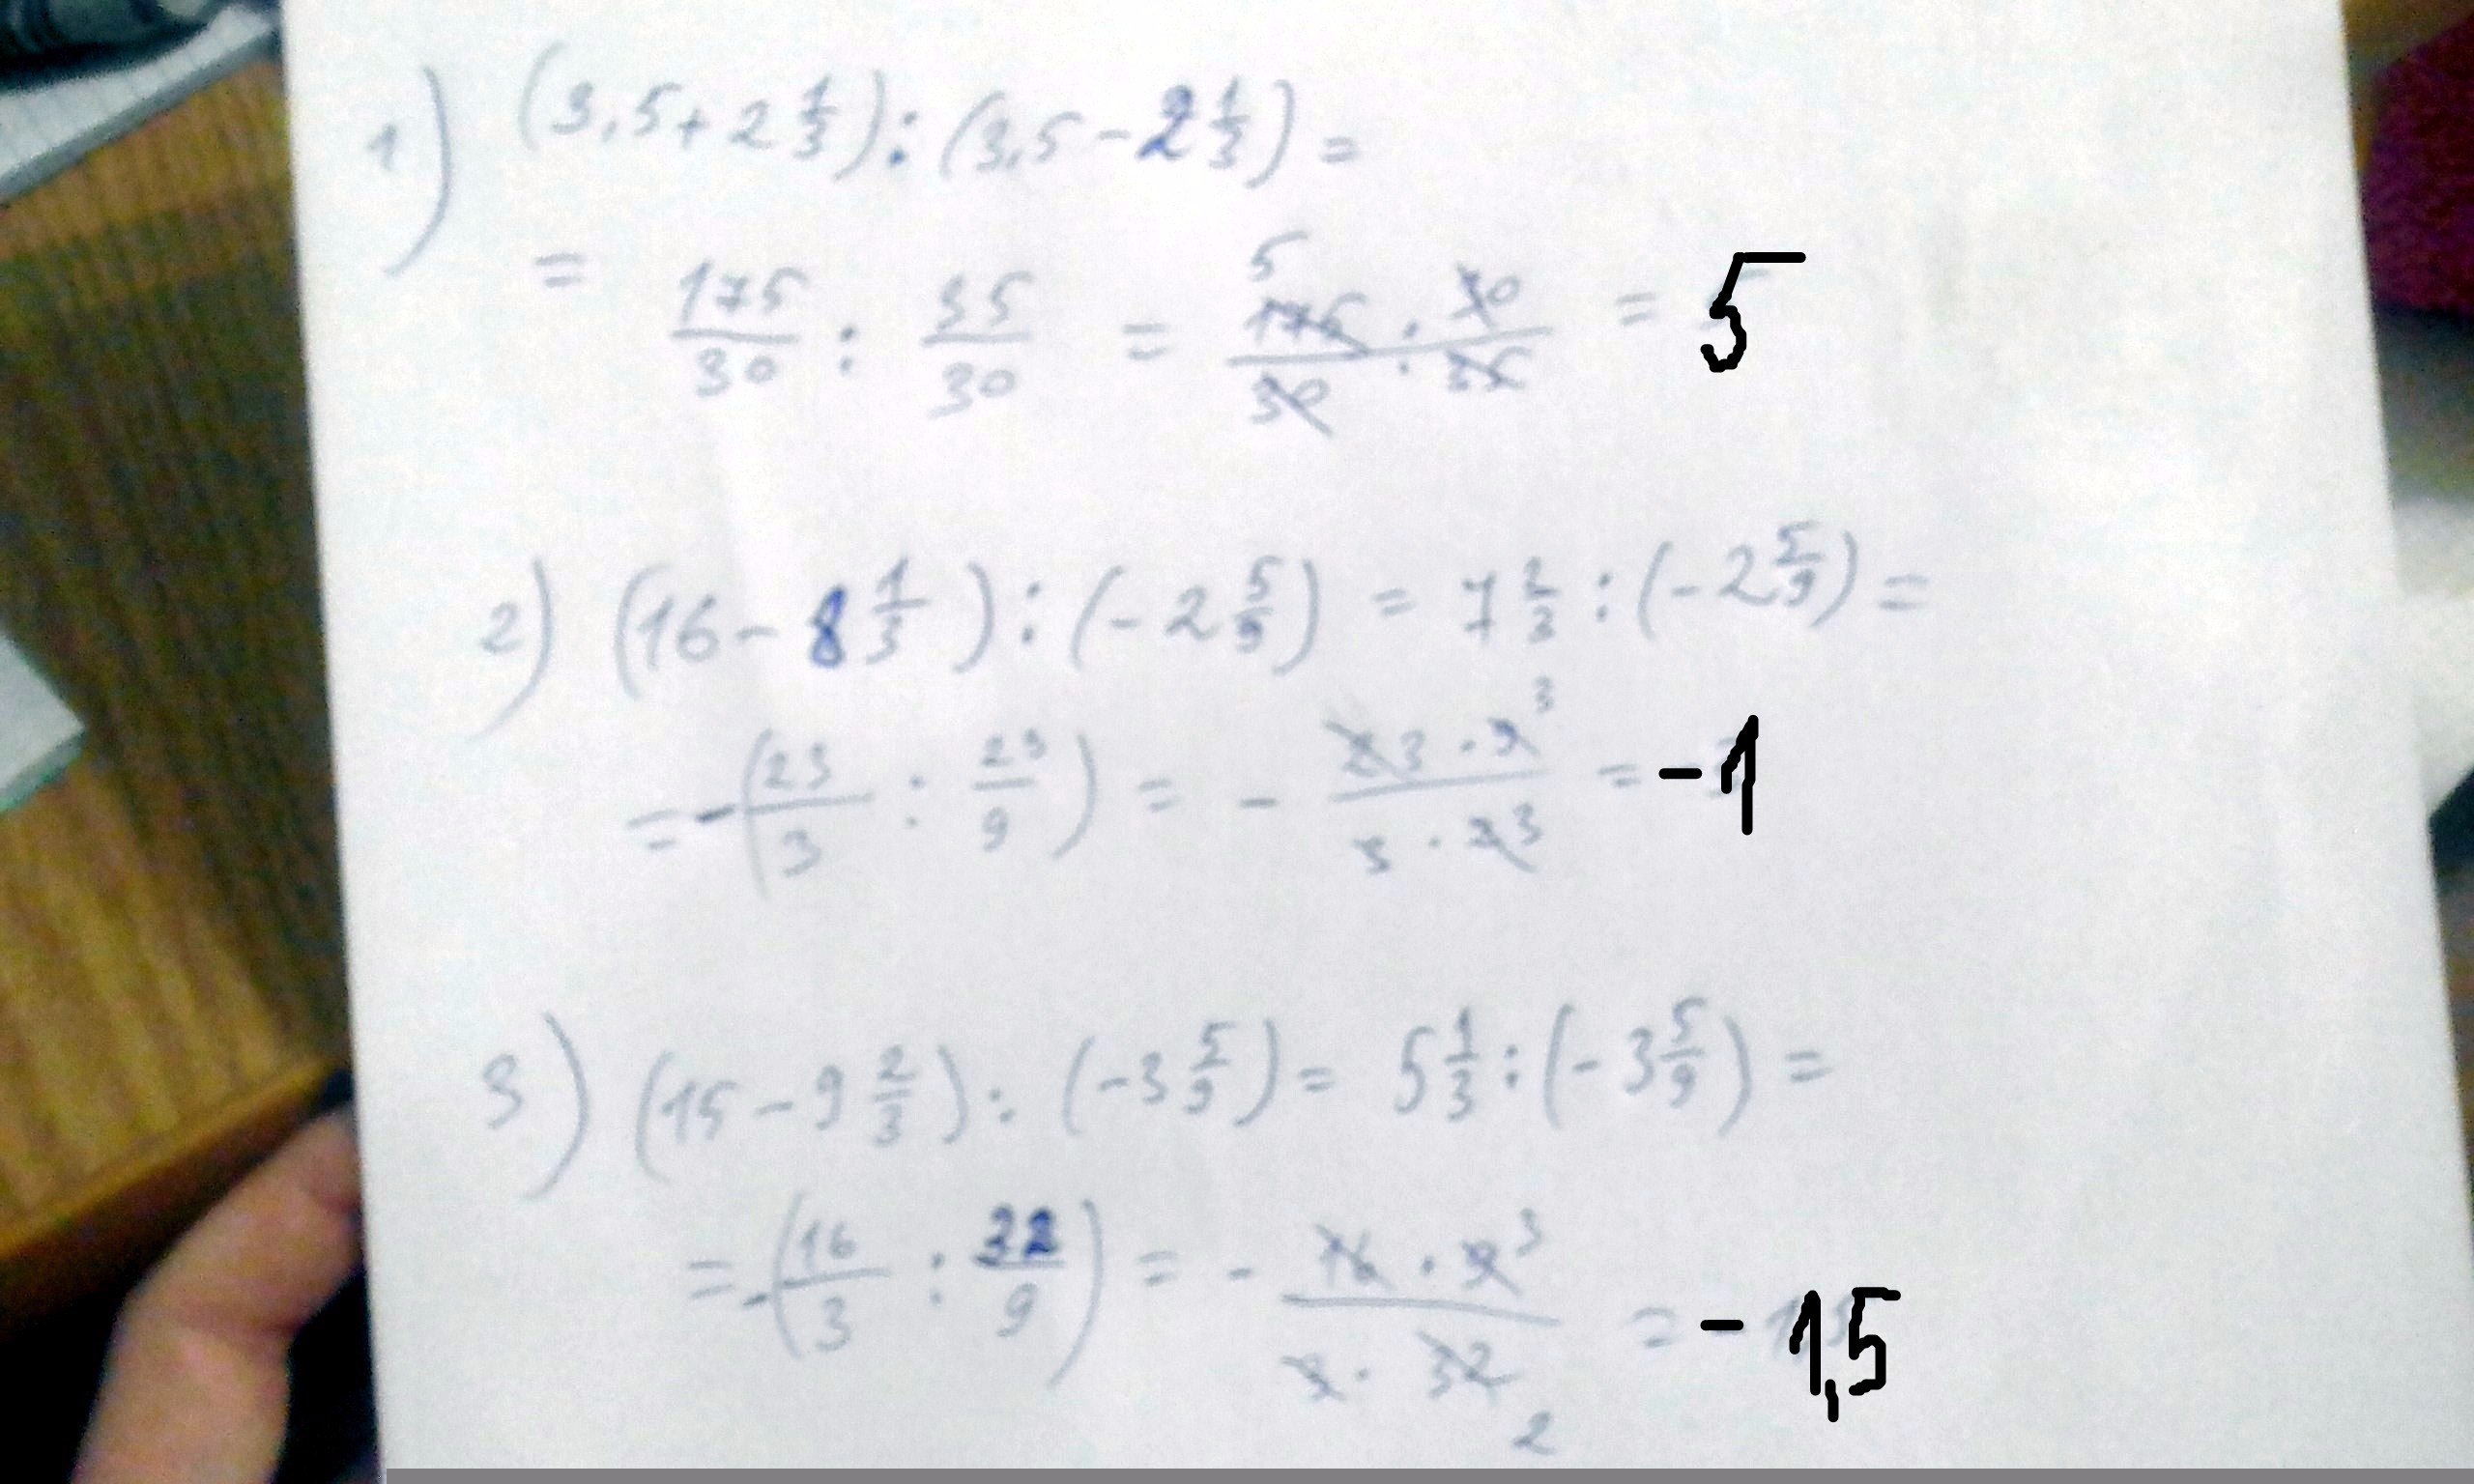 1) (3,5+2 1/3):(3,5-2 1/3)=
= 175/30 : 35/30 = 5 175·30/30·35 = 5
2) (16-8 1/3):(-2 5/9) = 7 2/3:(-2 5/9)=
=-(23/3 : 23/9) = - 23·9 3/3·23 = -1
3) (15-9 2/3):(-3 5/9)= 5 1/3:(-3 5/9)=
=-(16/3 : 32/9) = - 16·9 3/3·32 2 = -1,5